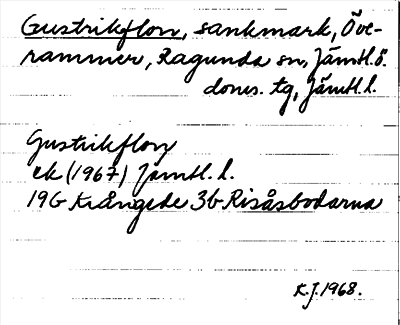 Gustrikflon, sankmark, Öve-
rammer, Ragunda sn, Jämtl. ö.
doms. tg, Jämtl. l.
Gustrikflon
ek (1967) Jämtl. l.
19G Krångede 3b Risåsbodarna
K.J. 1968.